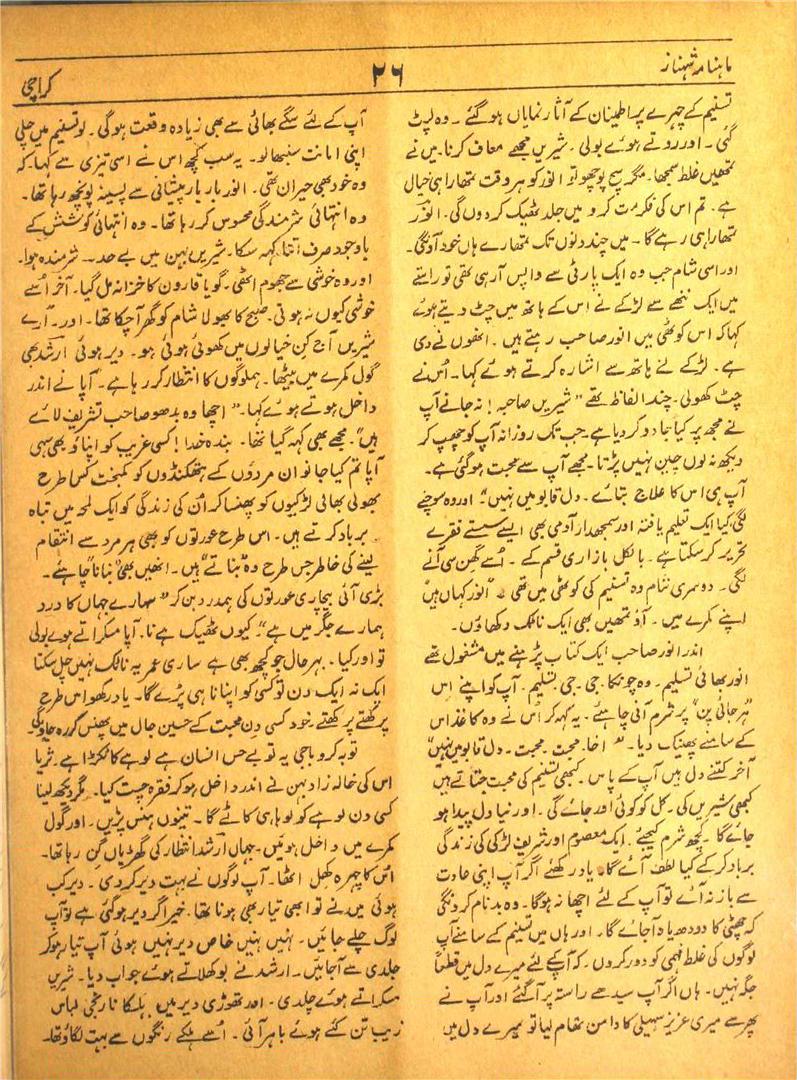 ماہنامہ شہناز
۲۶
کراچی
تسنیم کے چہرے پر اطمینان کے آثار نمایاں ہو گئے ۔ وہ لپٹ
گئی ۔ اور روتے ہوئے بولی ۔ شیریں مجھے معاف کرنا۔ میں نے
تمھیں غلط سمجھا۔ مگر سچ پوچھو تو انور کو ہر وقت تمھارا ہی خیال
ہے ۔ تم اس کی فکر مت کرو میں جلد ٹھیک کر دوں گی۔ انور
تمھارا ہی رہے گا ۔ میں چند دنوں تک تمھارے ہاں خود آؤنگی۔
اور اسی شام جب وہ ایک پارٹی سے واپس آرہی تھی تو راستے
میں ایک ننھے سے لڑکے نے اس کے ہاتھ میں چٹ دیتے ہوئے
کہا کہ اس کوٹھی میں انور صاحب رہتے ہیں ۔ انھوں نے دی
ہے ۔ لڑکے نے ہاتھ سے اشارہ کرتے ہوئے کہا ۔ اُس نے
چٹ کھولی ۔ چند الفاظ تھے " شیریں صاحبہ ! نہ جانے آپ
نے مجھ پر کیا جادو کر دیا ہے۔ جب تک روزانہ آپ کو چھپ کر
دیکھ نہ لوں چین نہیں پڑتا۔ مجھے آپ سے محبت ہو گئی ہے۔
آپ ہی اس کا علاج بتائے ۔ دل قابو میں نہیں" اور وہ سوچنے
لگی، کیا ایک تعلیم یافتہ اور سمجھدار آدمی بھی ایسے سستے فقرے
تحریر کر سکتا ہے ۔ بالکل بازاری قسم کے ۔ اُسے گھن سی آنے
لگی ۔ دوسری شام وہ تسنیم کی کوٹھی میں تھی " انور کہاں ہیں"
اپنے کمرے میں ۔ آؤ تمھیں بھی ایک ناٹک دکھاؤں۔
اندر انور صاحب ایک کتاب پڑھنے میں مشغول تھے
انور بھائی تسلیم ۔ وہ چونکا۔ جی ۔ جی تسلیم ۔ آپ کو اپنے اس
"ہرجائی پن" پر شرم آنی چاہئے ۔ یہ کہہ کر اُس نے وہ کاغذ اس
کے سامنے پھینک دیا ۔ " اخا۔ محبت ۔ محبت ۔ دل قابو میں نہیں"
آخر کتنے دل ہیں آپ کے پاس ۔ کبھی تسنیم کی محبت جتاتے ہیں
کبھی شیریں کی ۔ کل کو کوئی اور جائے گی ۔ اور نیا دل پیدا ہو
جائے گا ۔ کچھ شرم کیجئے ۔ ایک معصوم اور شریف لڑکی کی زندگی
برباد کر کے کیا لطف آئے گا۔ یاد رکھئے اگر آپ اپنی عادت
سے باز نہ آئے تو آپ کے لئے اچھا نہ ہوگا ۔ وہ بدنام کر دونگی
کہ چھٹی کا دودھ یاد آجائے گا ۔ اور ہاں میں تسنیم کے سامنے آپ
لوگوں کی غلط فہمی کو دور کر دوں ۔ کہ آپ کے لئے میرے دل میں قطعاً
جگہ نہیں ۔ ہاں اگر آپ سیدھے راستہ پر آگئے اور آپ نے
پھر سے میری عزیز سہیلی کا دامن تھام لیا تو میرے دل میں
آپ کے لئے سگے بھائی سے بھی زیادہ وقعت ہوگی ۔ لو تسنیم میں چلی
اپنی امانت سنبھالو ۔ یہ سب کچھ اس نے اسی تیزی سے کہا ۔ کہ
وہ خود بھی حیران تھی ۔ انور بار بار پیشانی سے پسینہ پونچھ رہا تھا ۔
وہ انتہائی شرمندگی محسوس کر رہا تھا ۔ وہ انتہائی کوشش کے
باوجود صرف اتنا کہہ سکا ۔ شیریں بہن میں بے حد ۔ شرمندہ ہوا۔
اور وہ خوشی سے جھوم اٹھی ۔ گویا قارون کا خزانہ مل گیا ۔ آخر اُسے
خوشی کیوں نہ ہوتی ۔ صبح کا بھولا شام کو گھر آچکا تھا ۔ اور ۔ ارے
شیریں آج کن خیالوں میں کھوئی ہوئی ہو ۔ دیر ہوئی ارشد بھی
گول کمرے میں بیٹھا ۔ ہم لوگوں کا انتظار کر رہا ہے ۔ " آپا نے اندر
داخل ہوتے ہوئے کہا ۔ " اچھا وہ بدھو صاحب تشریف لائے
ہیں" ۔ مجھے بھی کہہ گیا تھا ۔ بندہ خدا ! کسی غریب کو اپناؤ بھی سہی
آپا تم کیا جانو ان مردوں کے ہتھکنڈوں کو کمبخت کس طرح
بھولی بھالی لڑکیوں کو پھنسا کر اُن کی زندگی کو ایک لمحہ میں تباہ
برباد کرتے ہیں ۔ اس طرح عورتوں کو بھی ہر مرد سے انتقام
لینے کی خاطر جس طرح وہ بناتے" ہیں ۔ انھیں بھی بنانا چاہئے ۔
بڑی آئی بیچاری عورتوں کی ہمدرد بن کر " سارے جہاں کا درد
ہمارے جگر میں ہے" ۔ کیوں ٹھیک ہے نا ۔ آپا مسکراتے ہوئے بولی
تو اور کیا ۔ بہر حال جو کچھ بھی ہے ساری عمر یہ ناٹک نہیں چل سکتا
ایک نہ ایک دن تو کسی کو اپنانا ہی پڑے گا ۔ یاد رکھو اس طرح
پرکھتے پرکھتے ۔ خود کسی دن محبت کے حسین جال میں پھنس کر رہ جاؤگی
توبہ کرو باجی یہ تو بے حس انسان ہے لوہے کا ٹکڑا ہے ۔ ثریا
اس کی خالہ زاد بہن نے اندر داخل ہو کر فقرہ چست کیا ۔ مگر دیکھ لینا
کسی دن لوہے کو لوہا ہی کاٹے گا ۔ تینوں ہنس پڑیں ۔ اور گول
کمرے میں داخل ہوئیں ۔ جہاں ارشد انتظار کی گھڑیاں گن رہا تھا۔
اُس کا چہرہ کھل اٹھا ۔ آپ لوگوں نے بہت دیر کر دی ۔ دیر کب
ہوئی میں نے تو ابھی تیار بھی ہونا تھا ۔ خیر اگر دیر ہو گئی ہے تو آپ
لوگ چلے جائیں ۔ نہیں نہیں خاص دیر نہیں ہوئی آپ تیار ہو کر
جلدی سے آجائیں ۔ ارشد نے بوکھلاتے ہوئے جواب دیا ۔ شیریں
مسکراتے ہوئے چلدی ۔ اور تھوڑی دیر میں ہلکا نارنجی لباس
زیب تن کئے ہوئے باہر آئی ۔ اُسے ہلکے رنگوں سے بہت لگاؤ تھا۔